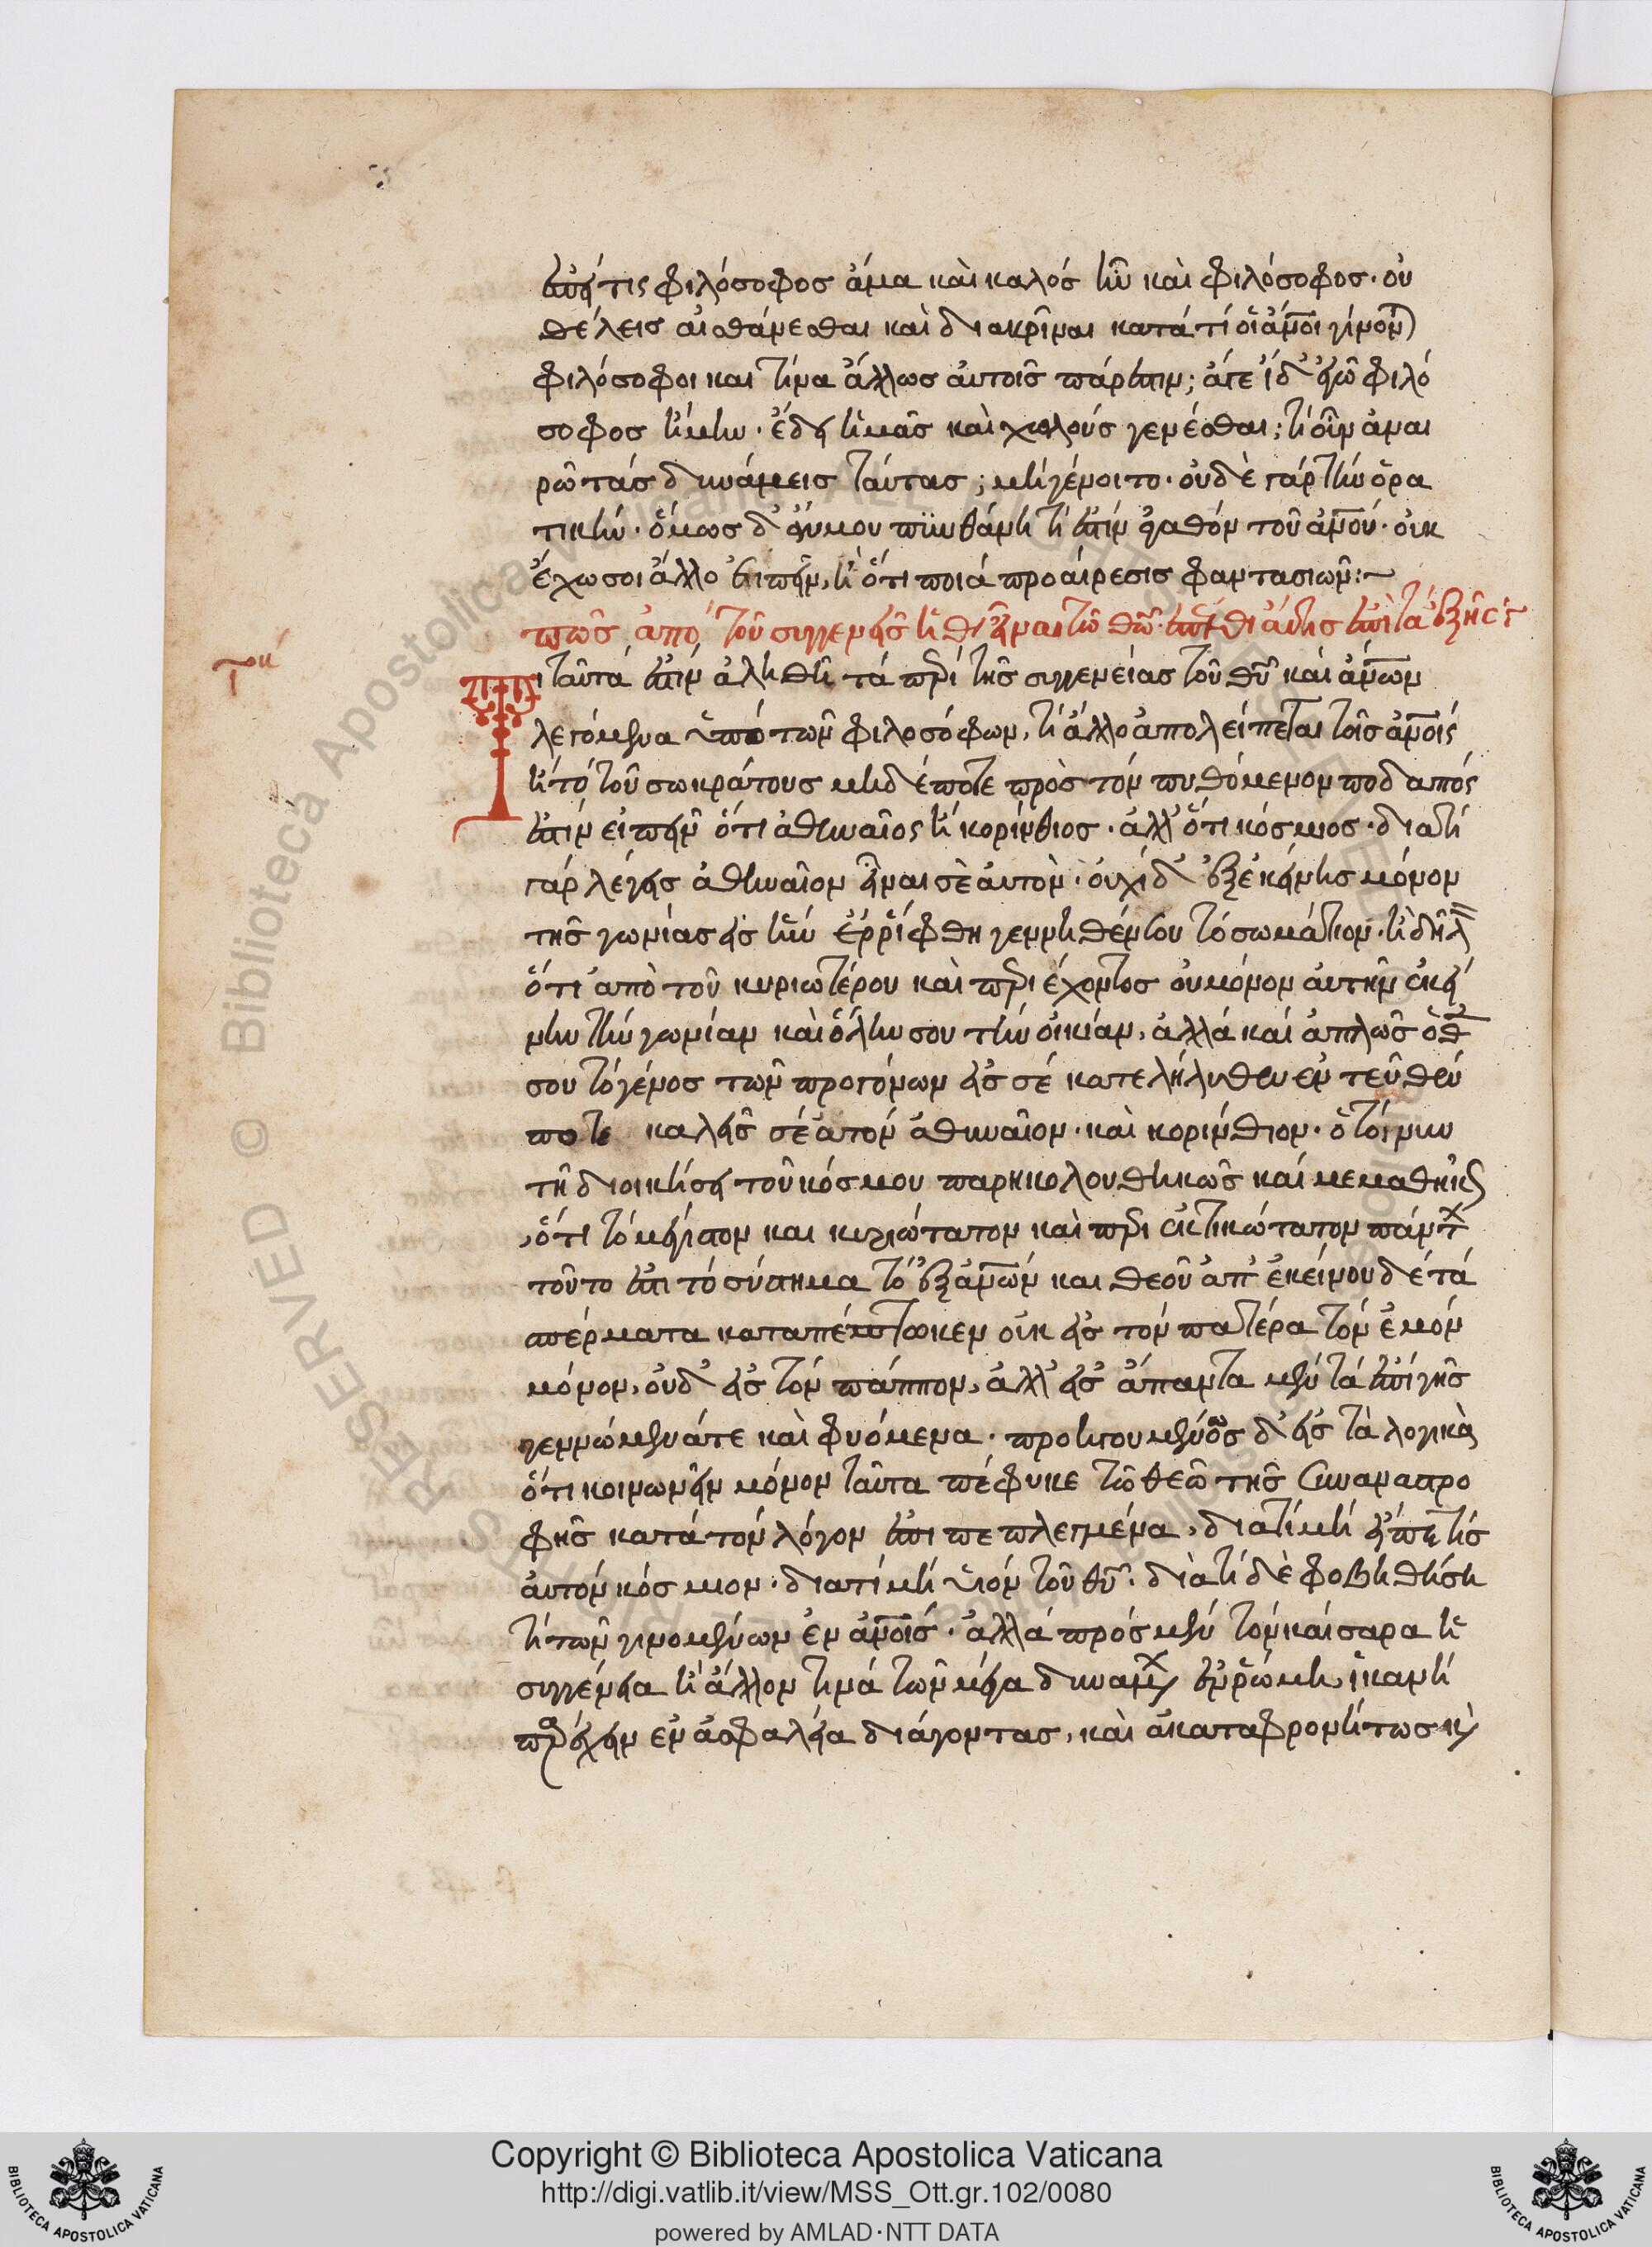 ἐπεί τις φιλόσοφος ἅμα καὶ καλός ἦν καὶ φιλόσοφος· οὐ
θέλεις αἰσθάνεσθαι καὶ διακρῖναι κατά τί οἱ ἄνοι γίνον
φιλόσοφοι και τίνα ἄλλως ἀυτοῖς πάρεστιν; ἄγε εἰ δ' ἐγὼ φιλό
σοφος ἤμην· ἔδει ἡμᾶς καὶ χωλούς γενέσθαι; τί οὖν ἀναι
ρῶ τάς δυνάμεις ταύτας; μή γένοιτο· οὐδὲ γάρ τήν ὁρα
τικήν· ὅμως δ' ἄν μου πϋνθάνῃ τί ἐστίν ἀγαθόν τοῦ ἀνού· οὐκ
ἔχω σοι ἄλλο εἰπεῖν, ἢ ὅτι ποιά προαίρεσις φαντασιῶν:~
πῶς ἀπό τοῦ συγγενεῖς ἡ θι εἶναι τῶ θῶ ἐπι ἐπὶ τὰ ἑξῆς
Τκ
ι ταῦτά ἐστίν ἀληθῆ τά περί τῆς συγγενείας τοῦ θῦ καὶ ἀνων
λεγόμενα ὑπό τῶν φιλοσόφων, τί ἄλλο ἀπολείπεται τοῖς ἀνοις
ἤ τό τοῦ σωκράτους μηδέποτε πρὸς τόν πυθόμενον ποδαπός
ἐστίν εἰπεῖν ὅτι ἀθηναῖος ἤ κορίνθιος· ἀλλ' ὅτι κόσμιος· διατί
γάρ λέγεις ἀθηναῖον εἶναι σὲ ἀυτὸν· ὀυχί δ' ἐξ ἐκείνης μόνον
τῆς γωνίας εἰς ἥν ἐῤῥίφθη γεννηθέντου τό σωμάτιον· ἢ δῆλ
ὅτι ἀπὸ τοῦ κυριωτέρου καὶ περιέχοντος ὀυ μόνον ἀυτὴν ἐκεί
νην τήν γωνίαν καὶ ὅλην σου τήν οἰκίαν, ἀλλά καί ἁπλῶς ὅθ
σου τό γένος τῶν προγόνων εἰς σέ κατελήλυθεν ἐν τεῦθεν
ποτε καλεῖς σέ ἀτον ἀθηναῖον· καὶ κορίνθιον· ὁ τοίνυν
τῆ διοικήσει τοῦ κόσμου παρηκολουθηκῶς καί μεμαθηκς
ὅτι τό μέγιστον και κυριώτατον καὶ περιεκτικώτατον πάντ
τοῦτο ἐστι τό σύστημα τό ἐξ ἀνων και θεοῦ ἀπ' ἐκείνου δέ τά
σπέρματα καταπέπτωκεν οὐκ εἰς τόν πατέρα τόν ἐμόν
μόνον, οὐδ' εἰς τόν πάππον, ἀλλ' εἰς ἅπαντα μέν τά ἐπί γῆς
γεννώμενάτε καὶ φυόμενα· προηγουμένως δ' εἰς τὰ λογικὰ
ὅτι κοινωνεῖν μόνον ταῦτα πέφυκε τῶ θεῶ τῆς συναναστρο
φῆς κατά τόν λόγον ἐπιπεπλεγμένα, διατί μή εἴπῃ τίς
ἀυτόν κόσμιον· διατί μή ὑιόν τοῦ θῦ· διὰ τί δὲ φοβηθήσῃ
τί τῶν γινομένων ἐν ἀνοις· ἀλλά πρός μέν τόν καίσαρα ἡ
συγγένεια ἤ ἄλλον τινά τῶν μέγα δυναμ ἐν ῥώμῃ, ἱκανή
παρέχειν ἐν ἀσφαλεία διάγοντας, καὶ ἀκαταφρονήτως κ
Copyright © Biblioteca Apostolica Vaticana
http://digi.vatlib.it/view/MSS_Ott.gr.102/0080
powered by AMLAD·NTT DATA